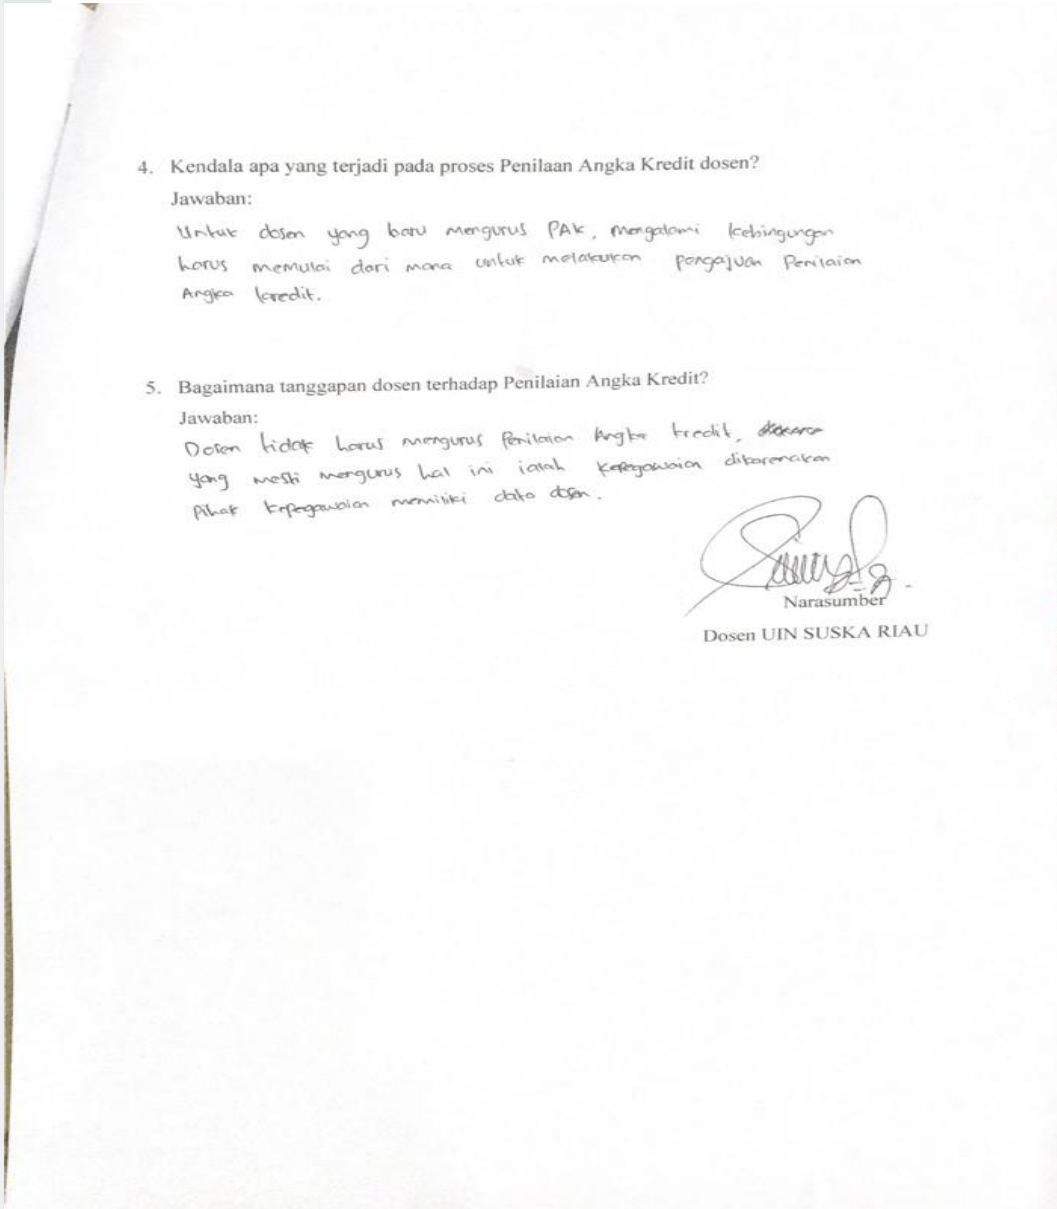 4. Kendala apa yang terjadi pada proses Penilaan Angka Kredit dosen?
Jawaban:
Untuk dosen yang baru mengurus PAK, mengalami kebingungan
harus memulai dari mana untuk melakukan pengajuan Penilaian
Angka kredit.
5. Bagaimana tanggapan dosen terhadap Penilaian Angka Kredit?
Jawaban:
Dosen tidak harus mengurus Penilaian Angka kredit,
yang mesti mengurus hal ini ialah kepegawaian dikarenakan
Pihak kepegawaian memiliki data dosen.
Narasumber
Dosen UIN SUSKA RIAU